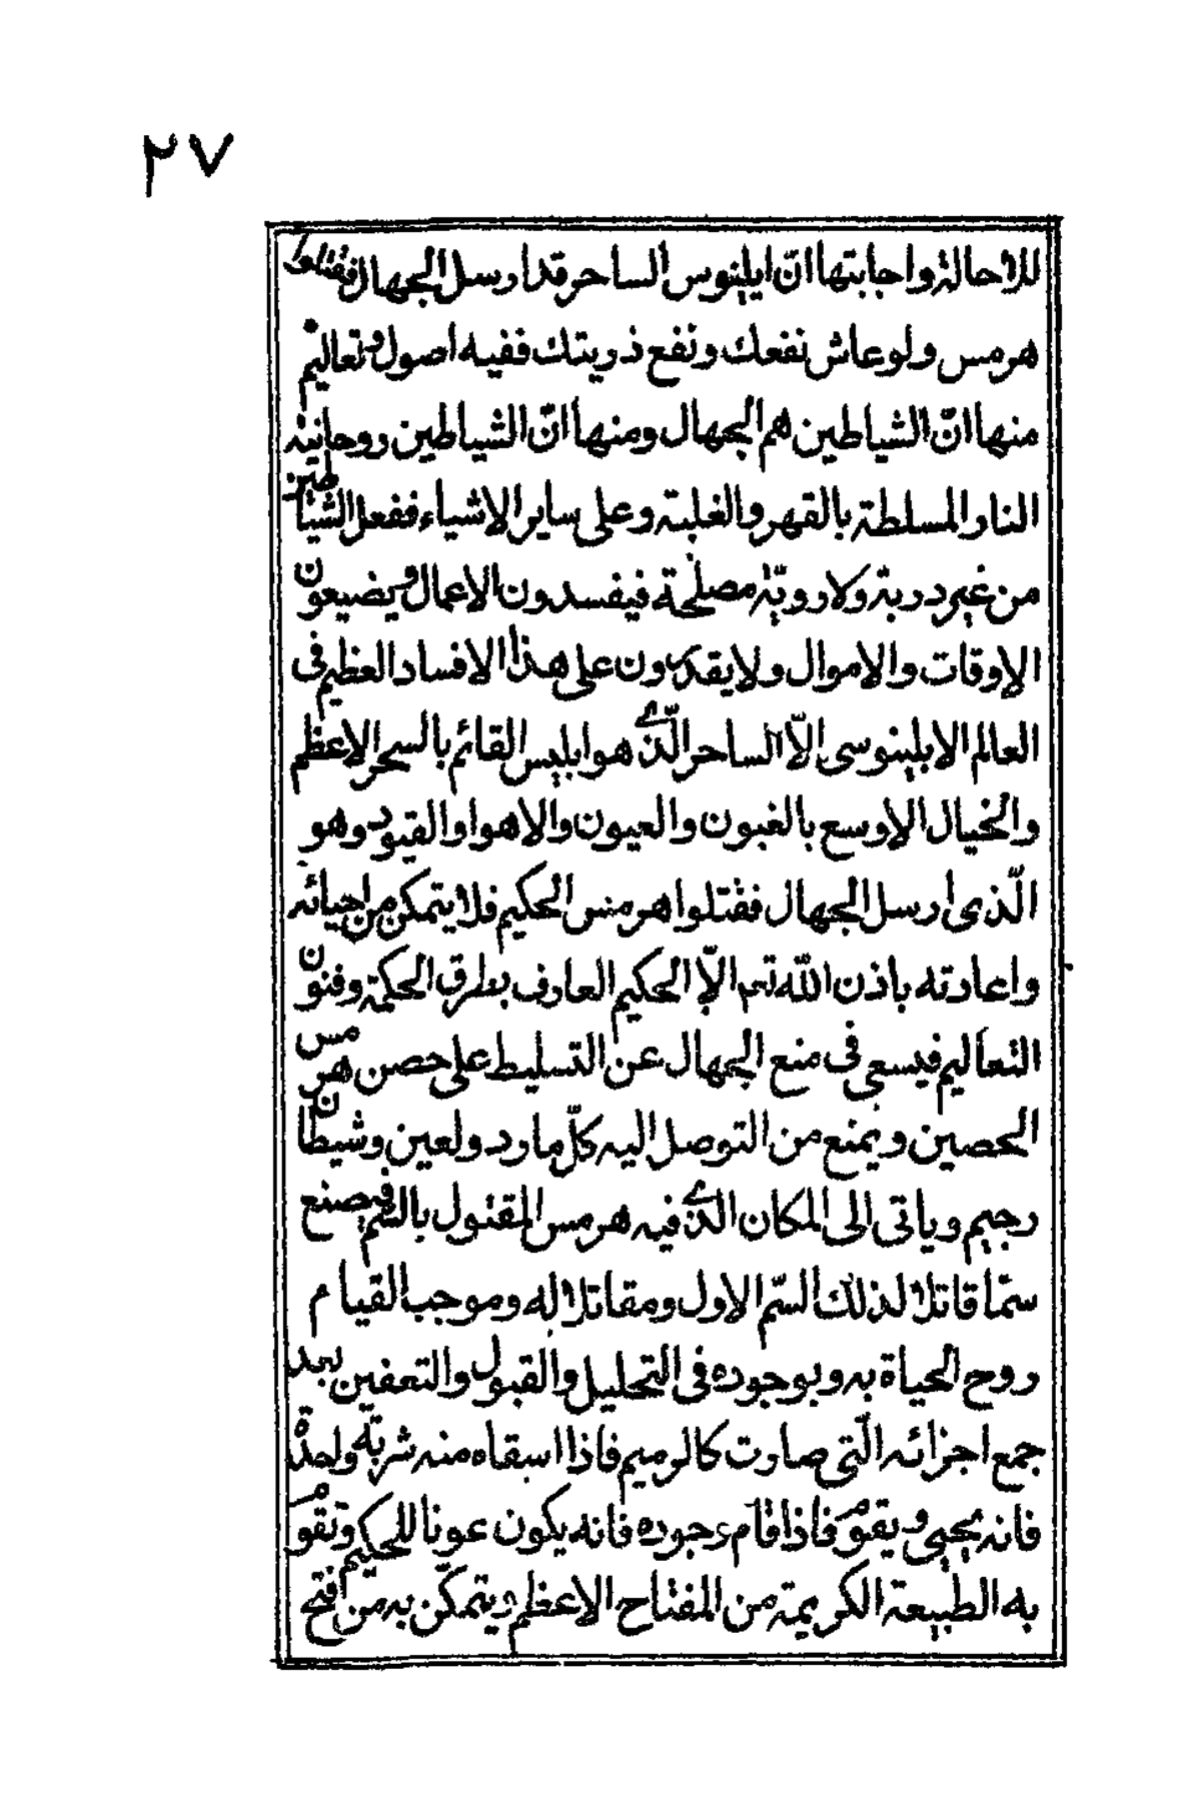 ٢٧
للاحالة واجابتها انّ ايلينوس الساحر قد ارسل الجهال فقتلوا
هرمس ولو عاش نفعك ونفع ذريتك ففيه اصول وتعاليم
منها انّ الشياطين هم الجهال ومنها انّ الشياطين روحانية
النار المسلطة بالقهر والغلبة وعلى ساير الاشياء ففعل الشياطين
من غير دربة ولا رويّة مصلحة فيفسدون الاعمال ويضيعون
الاوقات والاموال ولا يقدرون على هذا الافساد العظيم فى
العالم الابلينوسى الّا الساحر الّذى هو ابليس القائم بالسحر الاعظم
والخيال الاوسع بالغبون والعيون والاهوا والقيود وهو
الّذى ارسل الجهال فقتلوا هرمس الحكيم فلا يتمكن من احيائه
واعادته باذن الله تعم الّا الحكيم العارف بطرق الحكمة وفنون
التعاليم فيسعى فى منع الجهال عن التسليط على حصن هرمس
الحصين ويمنع من التوصل اليه كلّ مارد ولعين وشيطان
رجيم وياتى الى المكان الذى فيه هرمس المقتول بالسّم فيصنع
سمّا قاتلا لذلك السّم الاول ومقاتلا له وموجب القيام
روح الحياة به وبوجوده فى التحليل والقبول والتعفين بعد
جمع اجزائه الّتى صارت كالرميم فاذا اسقاه منه شربة واحدة
فانه يحيى ويقوم فاذا قام وجوده فانه يكون عونا للحكيم وتقوم
به الطبيعة الكريمة من المفتاح الاعظم ويتمكّن به من فتح